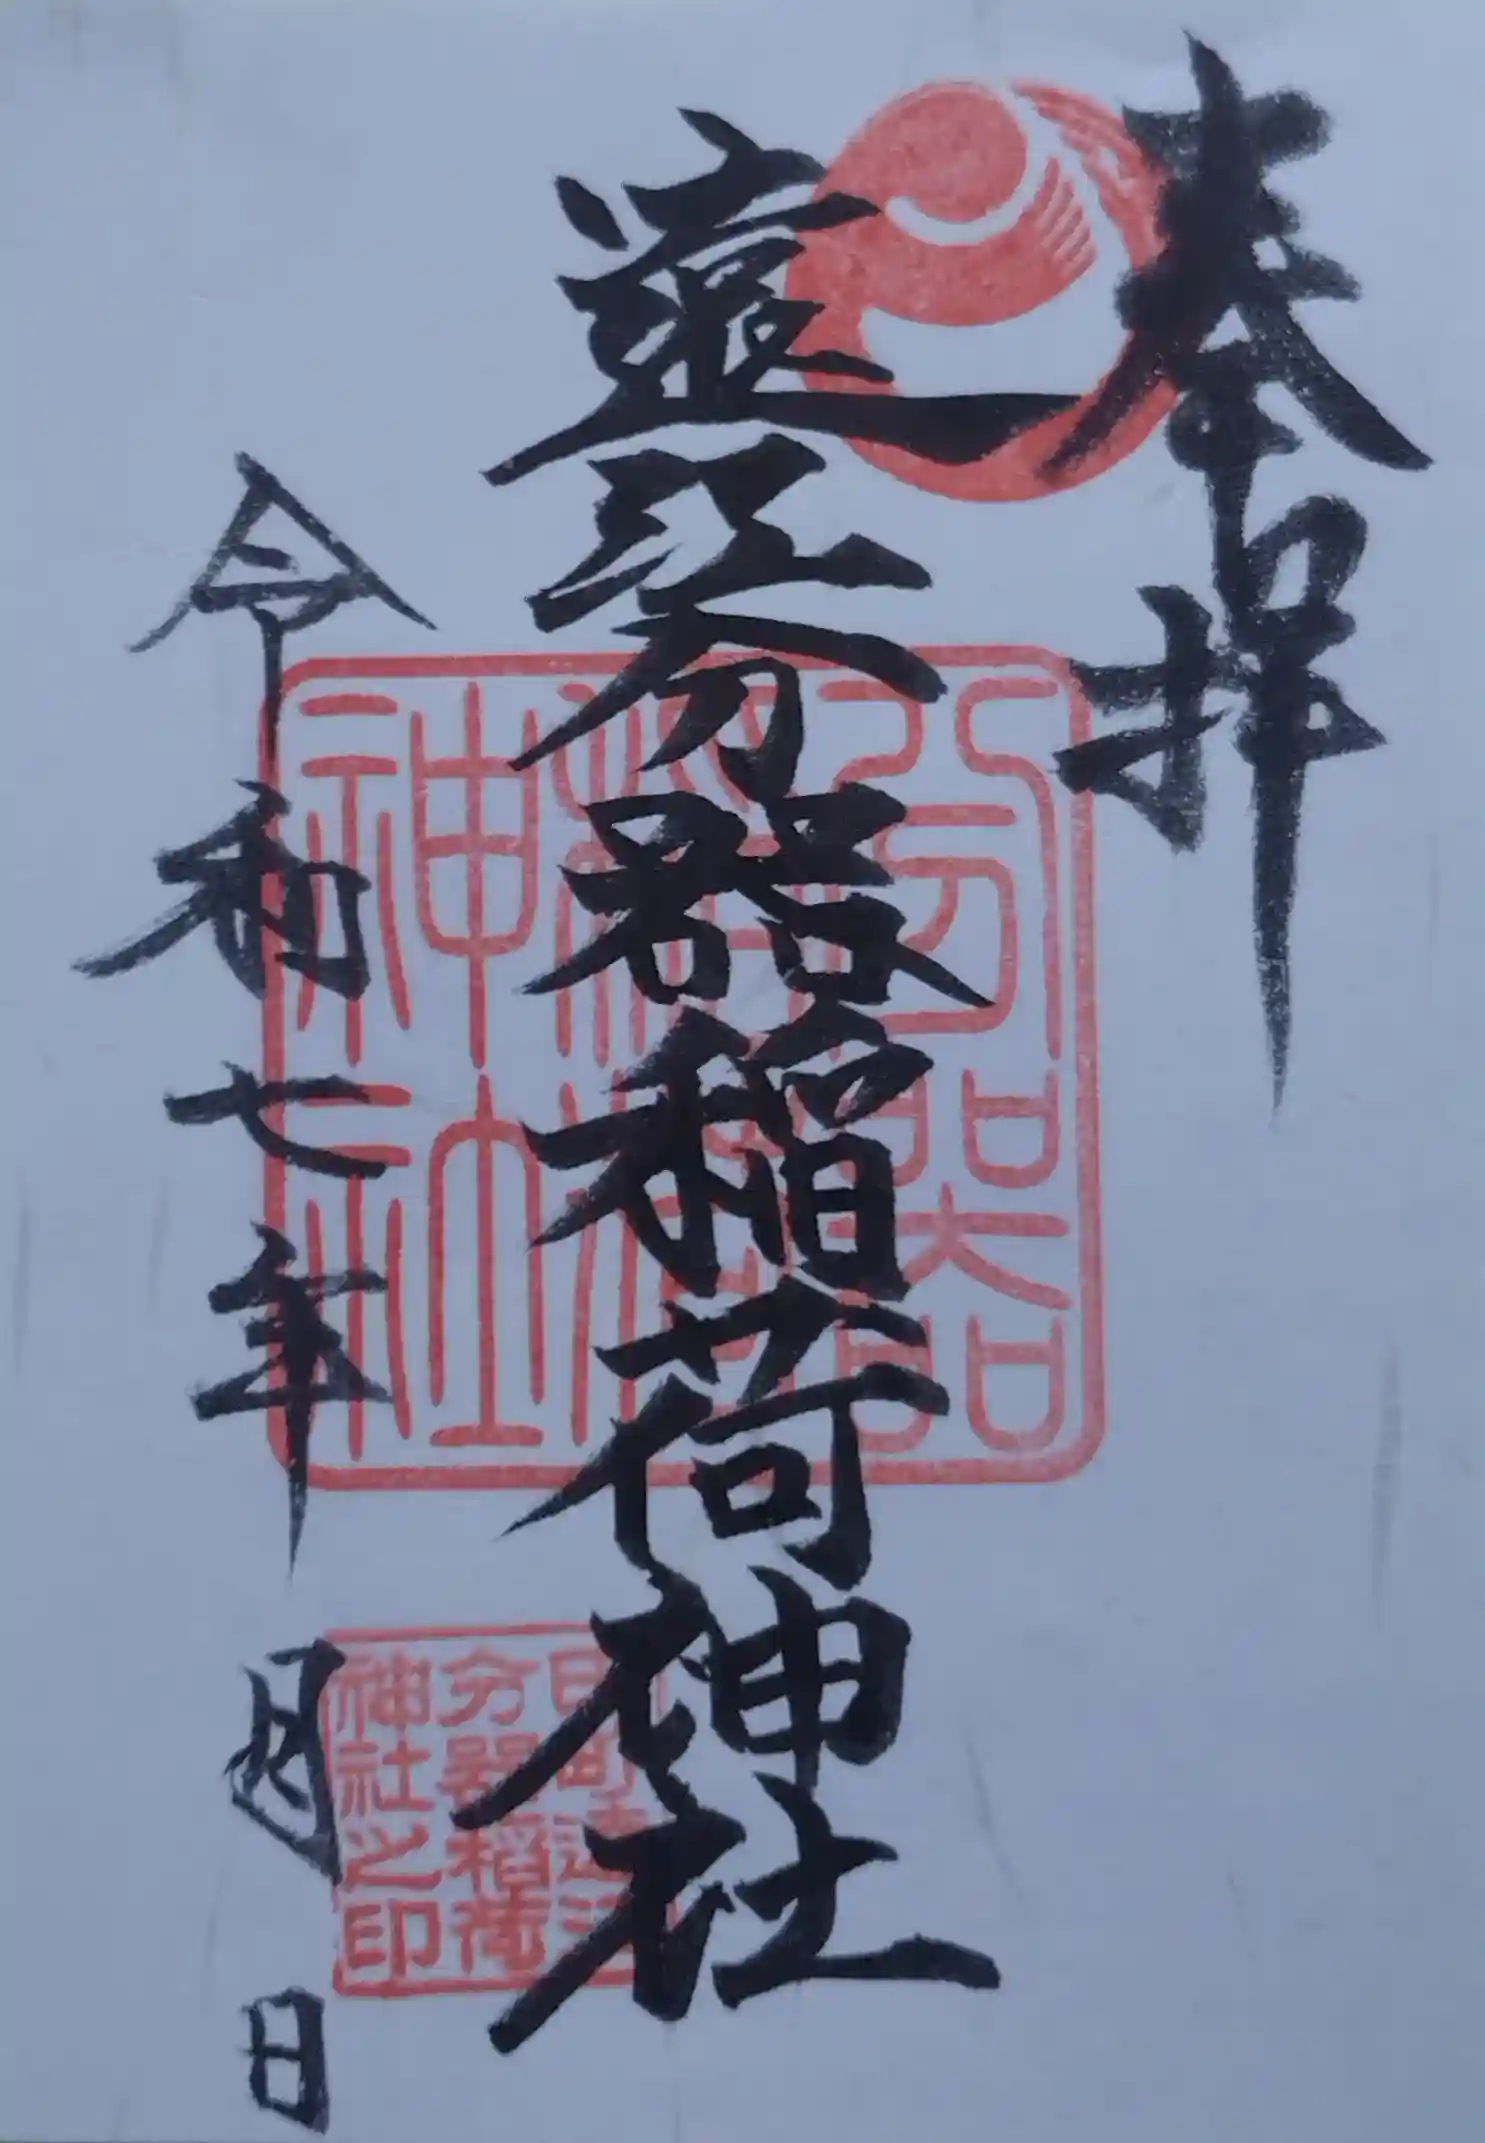 奉拝
遠江分器稲荷神社
分器
稲荷
神社
分器稲荷
神社之印
令和七年 月 日